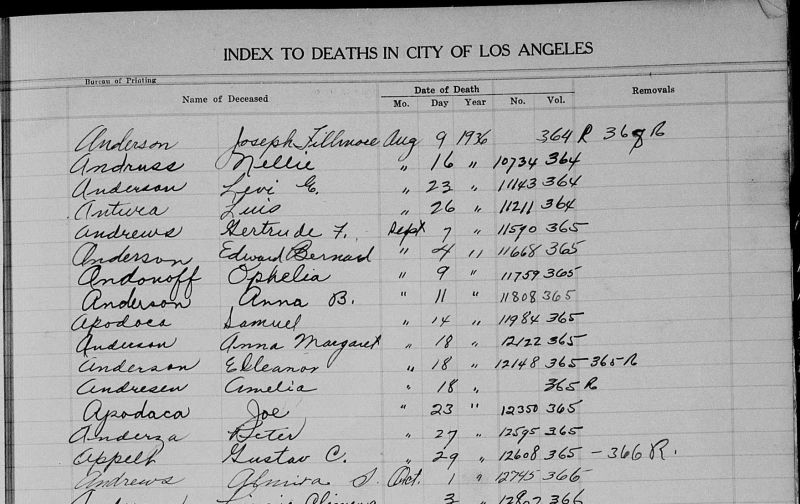 INDEX TO DEATHS IN CITY OF LOS ANGELES
Bureau of Printing
Name of Deceased Date of Death Removals
Mo. Day Year No. Vol.
Anderson Joseph Fillmore Aug 9 1936 364 R 368 R
Andruss Nellie " 16 " 10734 364
Anderson Levi E. " 23 " 11143 364
Antura Luis " 26 " 11211 364
Andrews Gertrude F. Sept 7 " 11590 365
Anderson Edward Bernard " 4 " 11668 365
Andonoff Ophelia " 9 " 11759 365
Anderson Anna B. " 11 " 11808 365
Apodoca Samuel " 14 " 11984 365
Anderson Anna Margaret " 18 " 12122 365
Anderson Elleanor " 18 " 12148 365 - 365 R
Andresen Amelia " 18 " 365 R
Apodaca Joe " 23 " 12350 365
Anderza Peter " 27 " 12595 365
Appelt Gustav C. " 29 " 12608 365 - 366 R.
Andrews Almira S. Oct. 1 " 12745 366
3 " 366